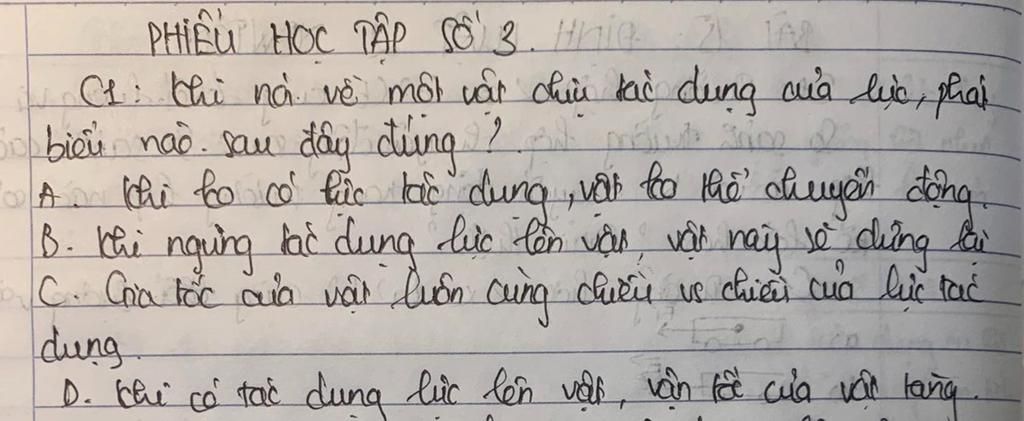 PHIẾU HỌC TẬP SỐ 3.
C1: Khi nói về một vật chịu tác dụng của lực, phát
biểu nào sau đây đúng?
A. Khi ko có lực tác dụng, vật ko thể chuyển động.
B. Khi ngừng tác dụng lực lên vật, vật này sẽ dừng lại
C. Gia tốc của vật luôn cùng chiều vs chiều của lực tác
dụng.
D. Khi có tác dụng lực lên vật, vận tốc của vật tăng.